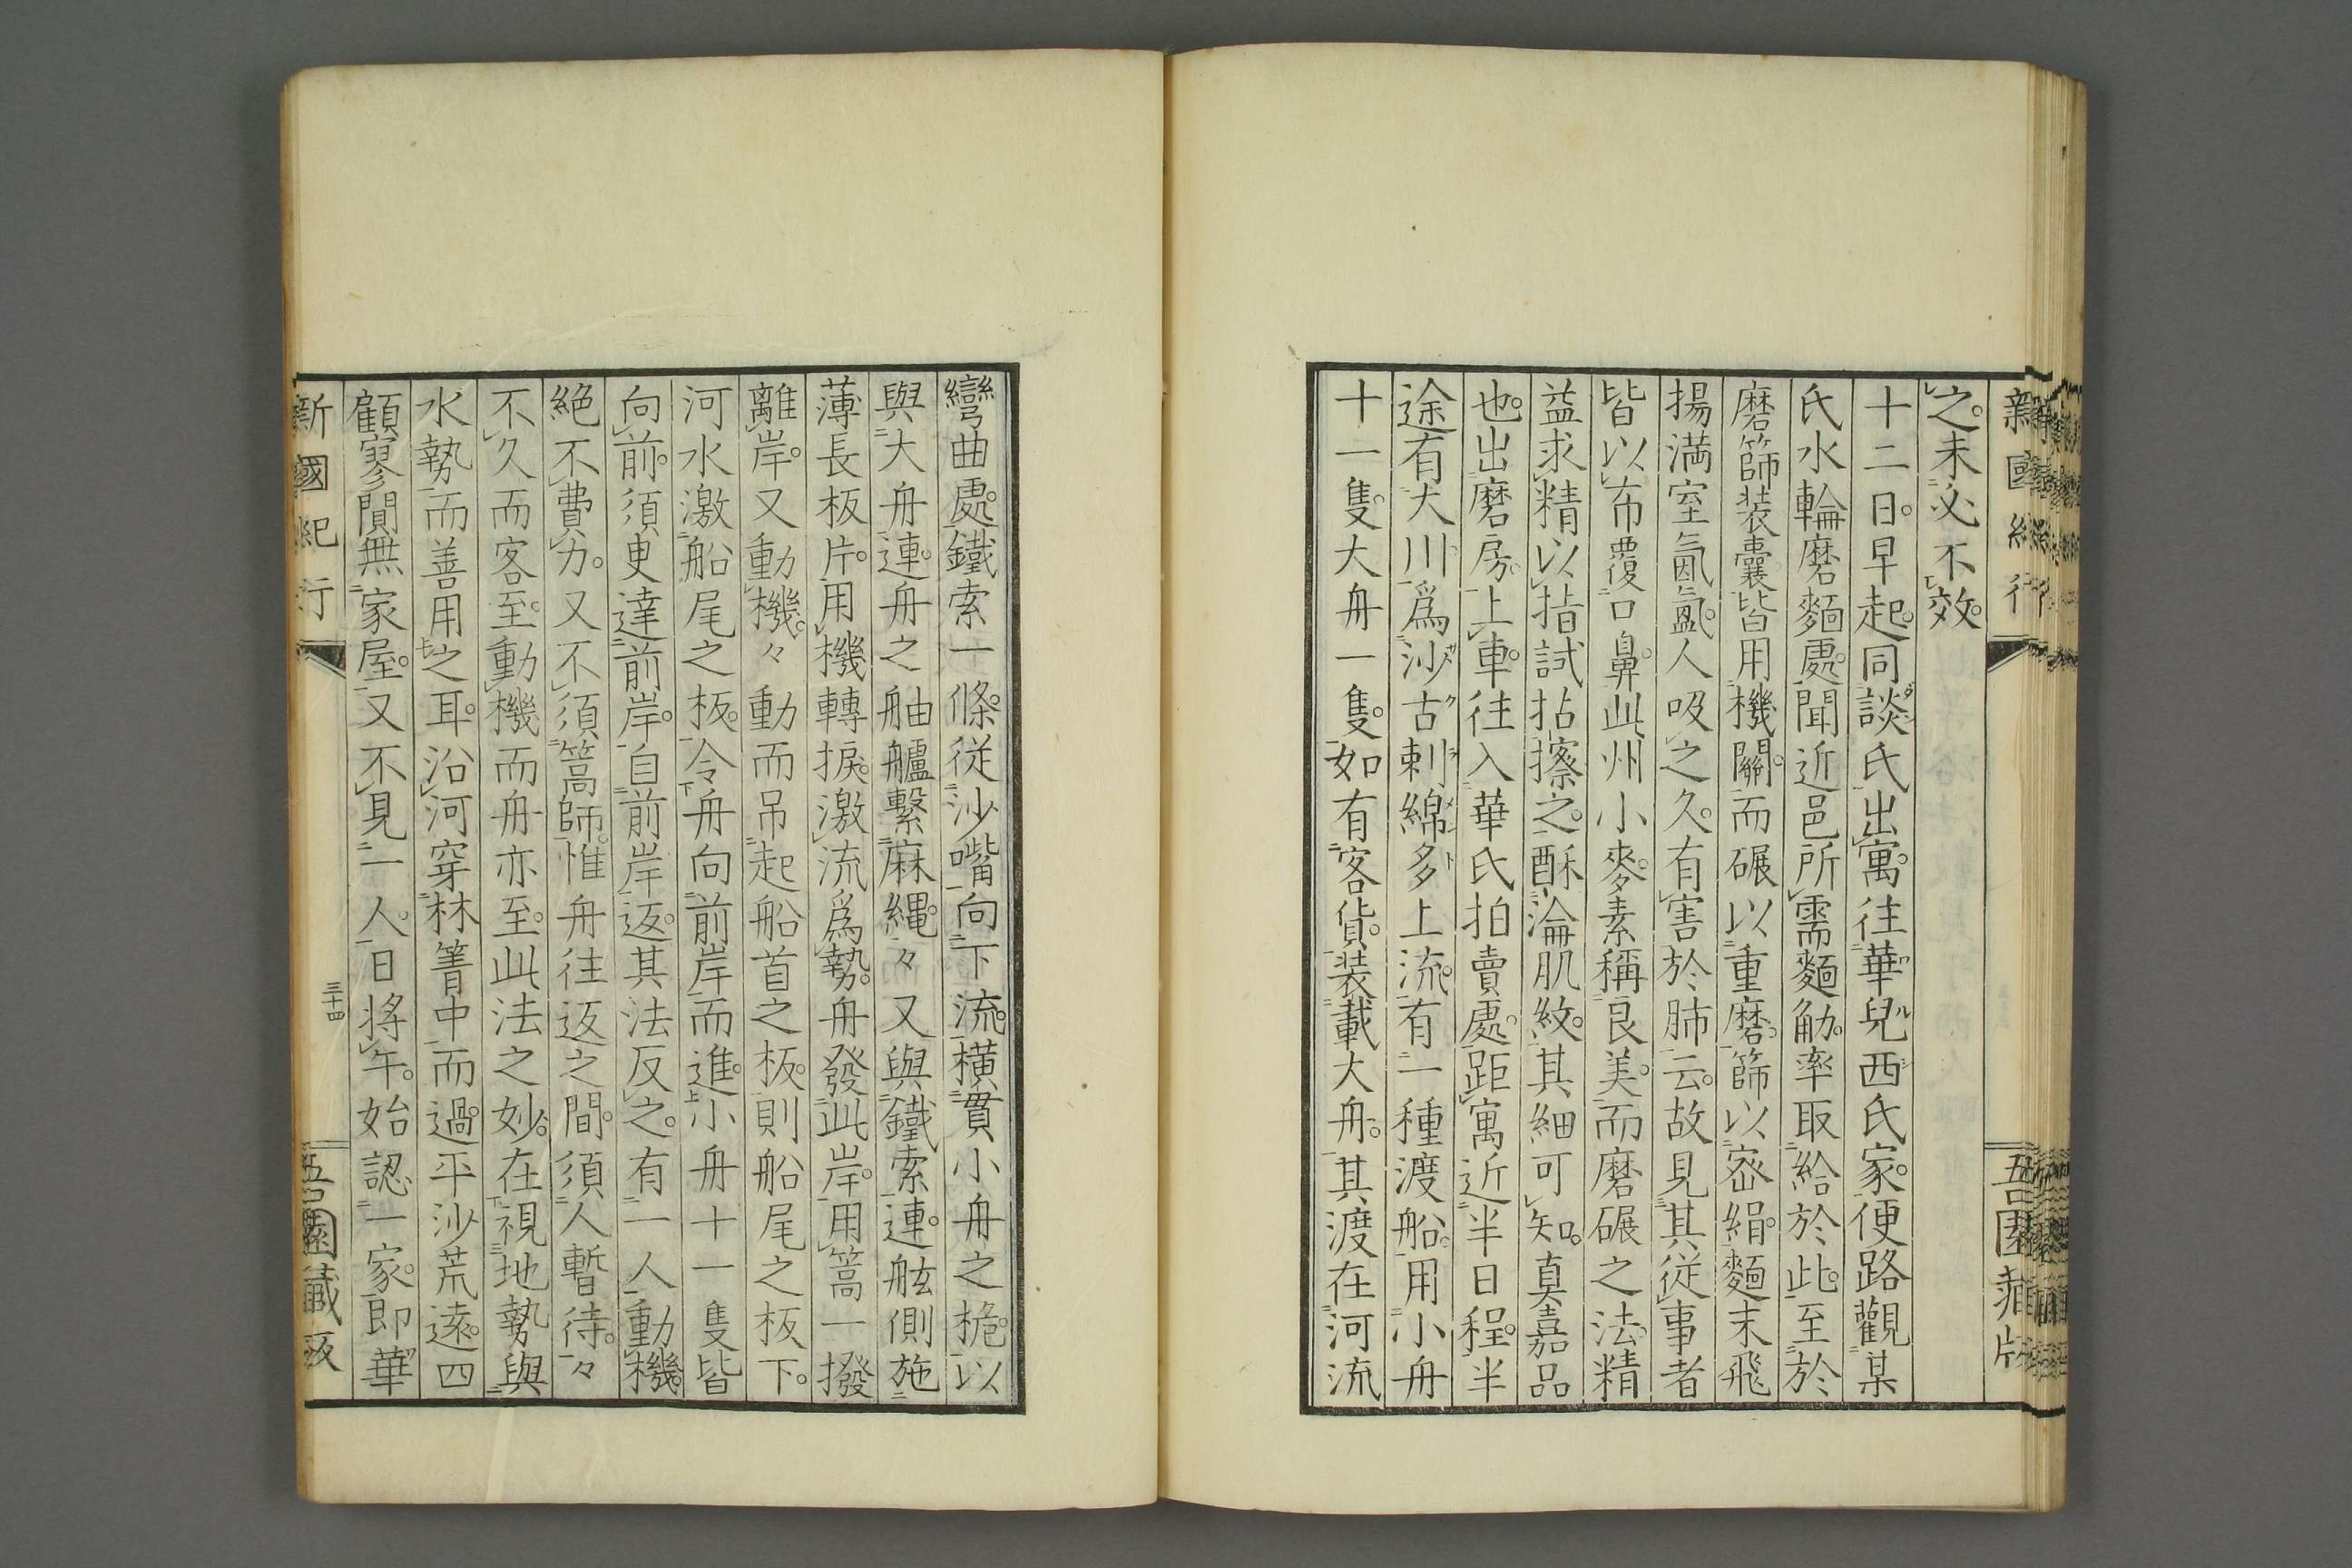 之。未必不效。
十二日。早起。同談氏出寓。往華兒西氏家。便路觀某
氏水輪磨麵處。聞近邑所需麵觔。率取給於此。至於
磨篩装囊。皆用機關。而碾以重磨。篩以密絹。麵末飛
揚満室氤氳。人吸之久。有害於肺云。故見其従事者
皆以布覆口鼻。此州小麥。素稱良美。而磨碾之法。精
益求精。以指試拈擦之。酥淪肌紋。其細可知。真嘉品
也。出磨房。上車。往入華氏拍賣處。距寓近半日程。半
途有大川。爲沙古剌綿多上流。有一種渡船。用小舟
十一隻。大舟一隻。如有客貨。装載大舟。其渡在河流
彎曲處。鐵索一條。従沙嘴向下流。横貫小舟之桅。以
與大舟連。舟之舳艫繫麻縄。々又與鐵索連。舷側施
薄長板片。用機轉捩。激流爲勢。舟發此岸。用篙一撥
離岸。又動機。々動而吊起船首之板。則船尾之板下。
河水激船尾之板。令舟向前岸而進。小舟十一隻皆
向前。須更達前岸。自前岸返。其法反之。有一人動機。
絶不費力。又不須篙師。惟舟往返之間。須人暫待。々
不久而客至。動機而舟亦至。此法之妙。在視地勢與
水勢而善用之耳。沿河穿林箐中而過。平沙荒遠。四
顧寥闃無家屋。又不見一人。日将午。始認一家。即華
新國紀行
三十四
吾園藏板